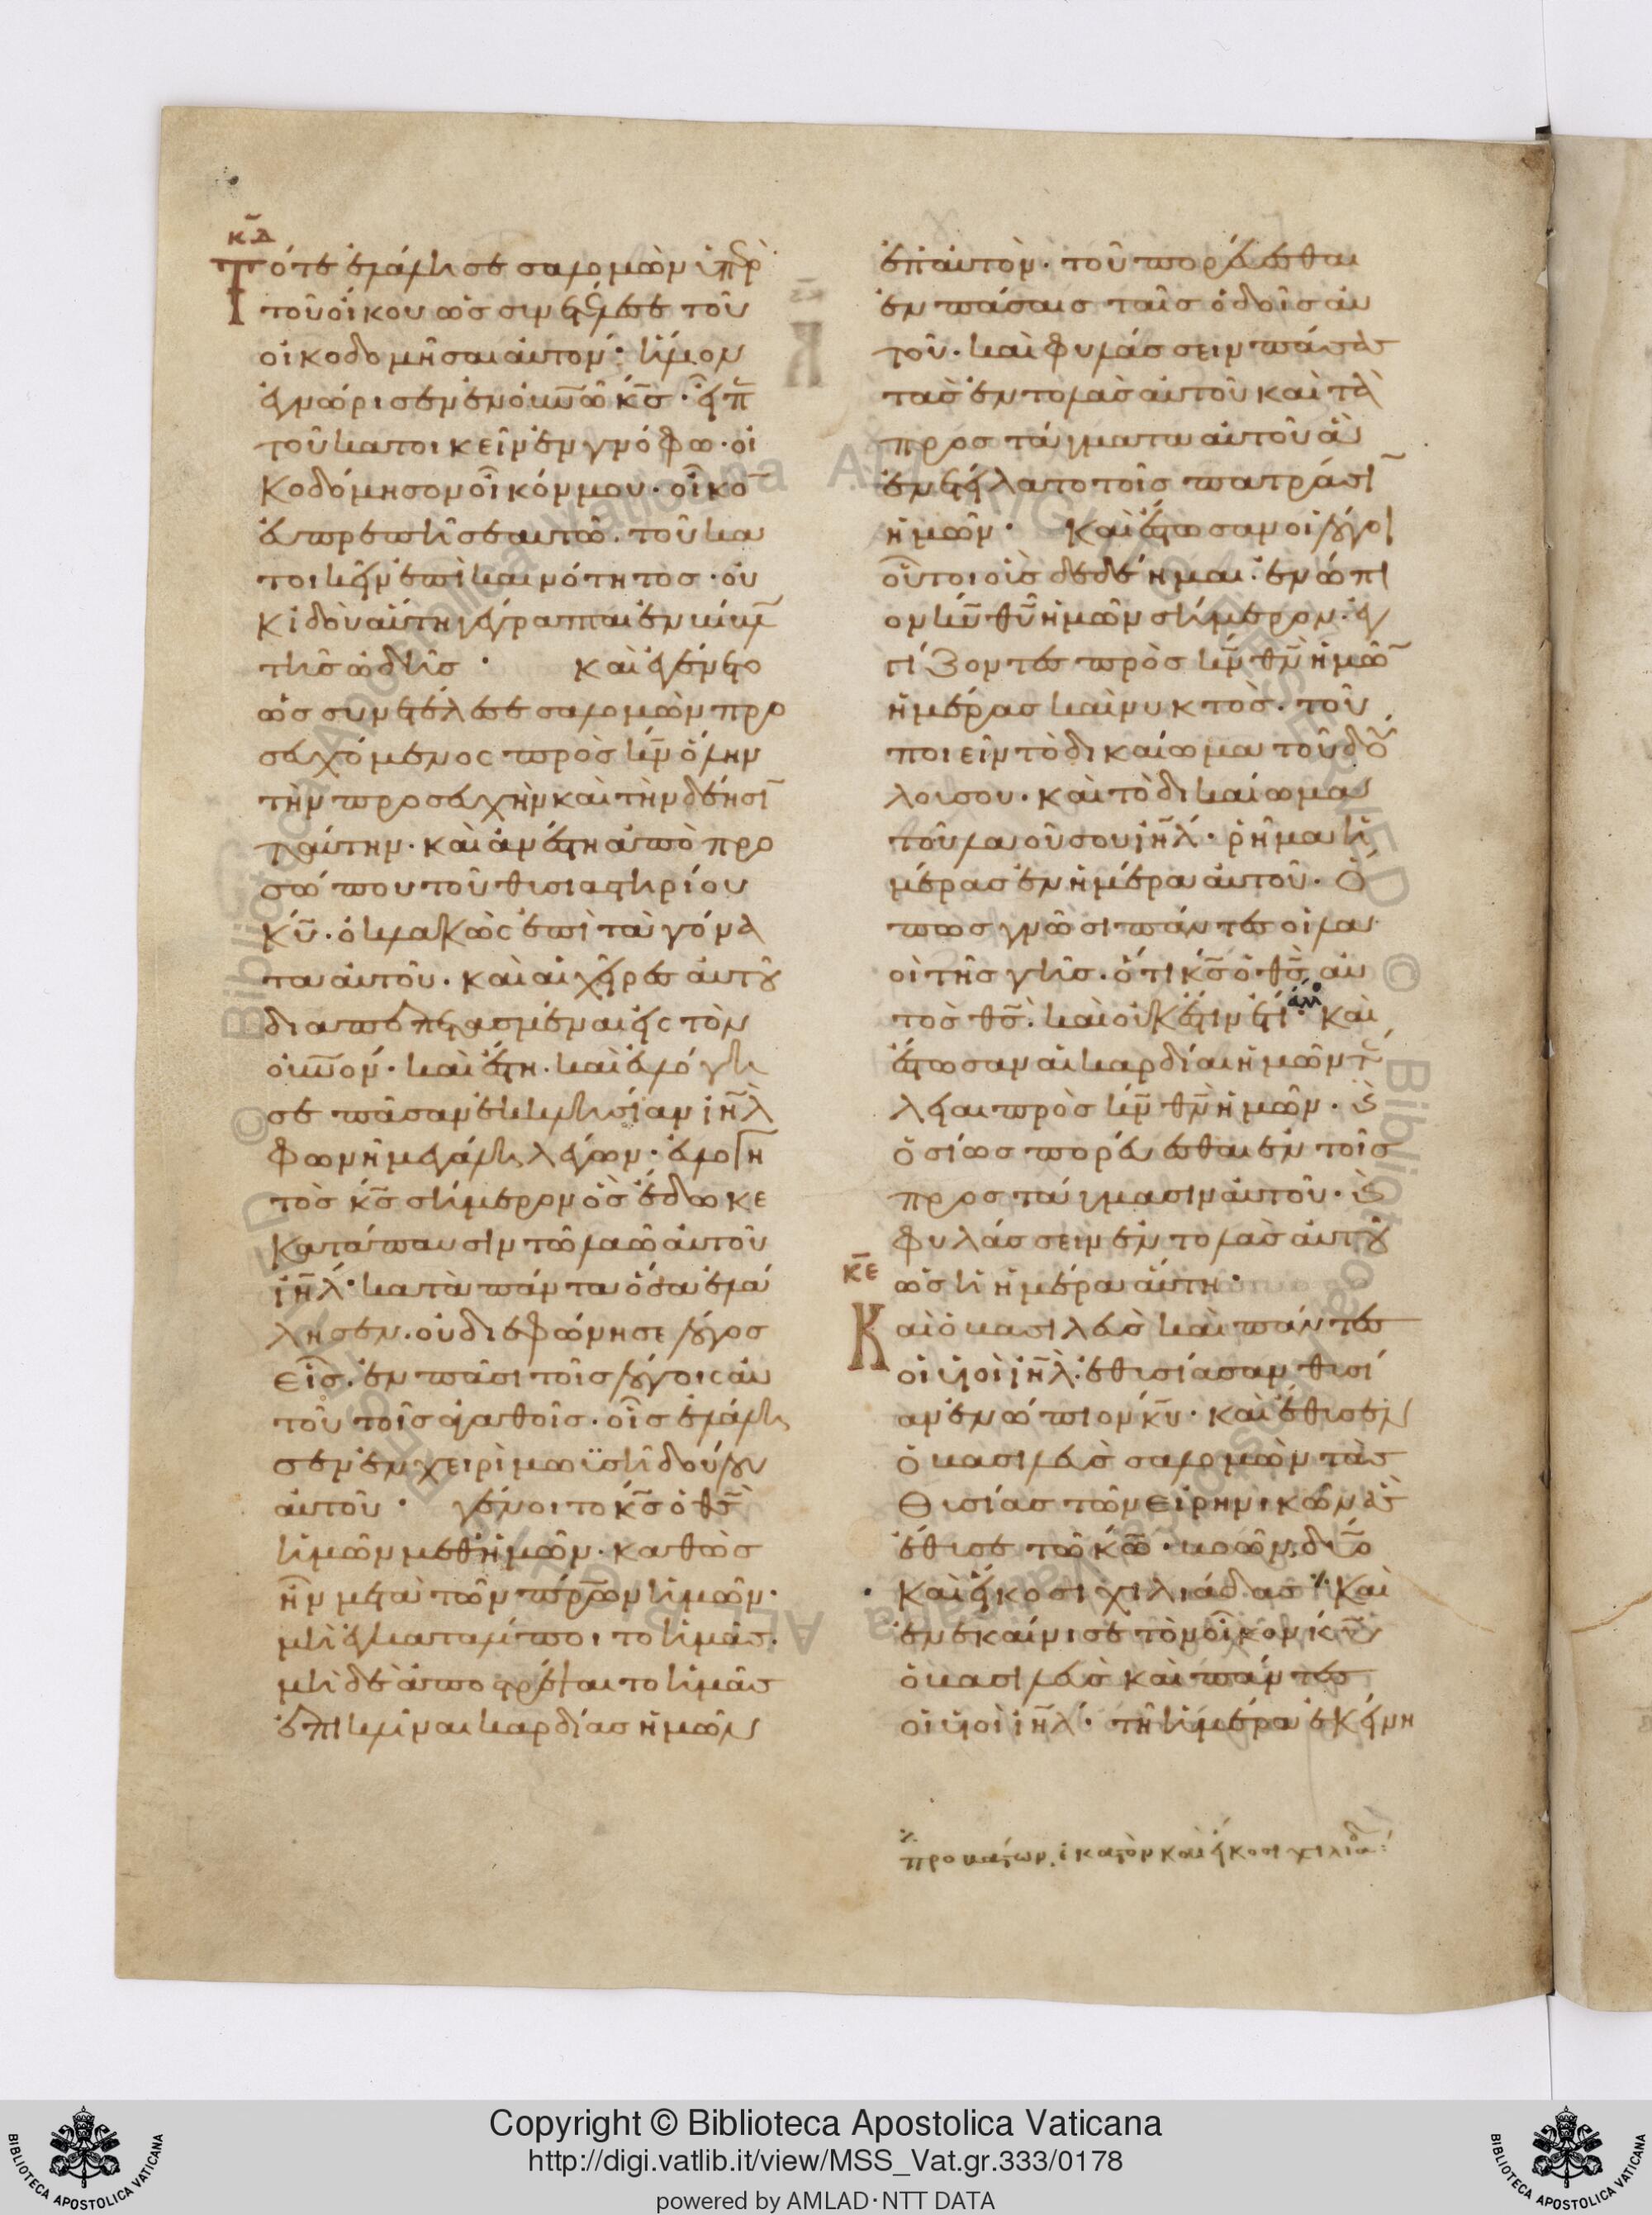 κ̅δ̅
Τότε ἐλάλησε σαλομὼν ὑπὲρ
τοῦ οἴκου ὡς συνετέλεσε τοῦ
οἰκοδομῆσαι αὐτόν· ἥλιον
ἐγνώρισεν ἐν οὐν̅ω̅ κ̅ς̅· εἶπ̅
τοῦ κατοικεῖν ἐν γνόφω· οἰ
κοδόμησον οἶκόν μου· οἶκο̅
εὐπρεπῆ σεαυτῶ· τοῦ κα
τοικεῖν ἐπὶ καινότητος· οὐ
κ ἰδοὺ αὕτη γέγραπται ἐν βιβλ̅
τῆς ὠδῆς· καὶ ἐγένετο
ὡς συνετέλεσε σαλομὼν προ
σευχόμενος πρὸς κ̅ν̅ ὅλην
τὴν προσευχὴν καὶ τὴν δέησι̅
ταύτην· καὶ ἀνέστη ἀπὸ προ
σώπου τοῦ θυσιαστηρίου
κ̅υ̅· ὀκλακὼς ἐπὶ τὰ γόνα
τα αὐτοῦ· καὶ αἱ χεῖρες αὐτοῦ
διαπεπετασμέναι εἰς τὸν
οὐν̅όν· καὶ ἔστη· καὶ εὐλόγη
σε πᾶσαν ἐκκλησίαν ι̅η̅λ̅
φωνῆ μεγάλη λέγων· εὐλογη
τὸς κ̅ς̅ σήμερον ὃς ἔδωκε
κατάπαυσιν τῶ λαῶ αὐτοῦ
ι̅η̅λ̅· κατὰ πάντα ὅσα ἐλά
λησεν· οὐ διεφώνησε λόγος
εἷς· ἐν πᾶσι τοῖς λόγοις αὐ
τοῦ τοῖς ἀγαθοῖς· οἷς ἐλάλη
σεν ἐν χειρὶ μωϋσῆ δούλου
αὐτοῦ· γένοιτο κ̅ς̅ ὁ θ̅ς̅
ἡμῶν μεθ ἡμῶν· καθὼς
ἦν μετὰ τῶν π̅ρ̅ω̅ν ἡμῶν·
μὴ ἐγκαταλίποιτο ἡμᾶς·
μὴ δὲ ἀποστρέψαιτο ἡμᾶς
ἐπικλῖναι καρδίας ἡμῶν
ἐπ αὐτὸν· τοῦ πορεύεσθαι
ἐν πάσαις ταῖς ὁδοῖς αὐ
τοῦ· καὶ φυλάσσειν πάσας
τὰς ἐντολὰς αὐτοῦ καὶ τὰ
προστάγματα αὐτοῦ ἃ
ἐνετείλατο τοῖς πατράσι̅
ἡμῶν· καὶ ἔστωσαν οἱ λόγοι
οὗτοι οἷς δεδέημαι ἐνώπι
ον κ̅υ̅ θ̅υ̅ ἡμῶν σήμερον· ἐγ
γίζοντες πρὸς κ̅ν̅ θ̅ν̅ ἡμῶ̅
ἡμέρας καὶ νυκτὸς· τοῦ
ποιεῖν τὸ δικαίωμα τοῦ δού
λου σου· καὶ τὸ δικαίωμα
τοῦ λαοῦ σου ι̅η̅λ̅· ῥῆμα ἡ
μέρας ἐν ἡμέρα αὐτοῦ· ὅ
πως γνῶσι πάντες οἱ λα
οὶ τῆς γῆς· ὅτι κ̅ς̅ ὁ θ̅ς̅ αὐ
τὸς θ̅ς̅· καὶ οὐκ ἔστιν ἔτι· καὶ
ἔστωσαν αἱ καρδίαι ἡμῶν τέ
λειαι πρὸς κ̅ν̅ θ̅ν̅ ἡμῶν· καὶ
ὁσίως πορεύεσθαι ἐν τοῖς
προστάγμασιν αὐτοῦ· καὶ
φυλάσσειν ἐντολὰς αὐτοῦ
ὡς ἡ ἡμέρα αὕτη·
κ̅ε̅
Καὶ ὁ βασιλεὺς καὶ πάντες
οἱ υἱοὶ ι̅η̅λ̅· ἔθυσίασαν θυσί
αν ἐνώπιον κ̅υ̅· καὶ ἔθυσεν
ὁ βασιλεὺς σαλομὼν τὰς
θυσίας τῶν εἰρηνικῶν ἃς
ἔθυσε τῶ κ̅ω̅· βοῶν δύο
καὶ εἴκοσι χιλιάδας ⁒ καὶ
ἐνεκαίνισε τὸν οἶκον κ̅υ̅
ὁ βασιλεὺς καὶ πάντες
οἱ υἱοὶ ι̅η̅λ̅· τῆ ἡμέρα ἐκείνη
⁒ προβάτων ἑκατὸν καὶ εἴκοσι χιλιάδας
Copyright © Biblioteca Apostolica Vaticana
http://digi.vatlib.it/view/MSS_Vat.gr.333/0178
powered by AMLAD·NTT DATA